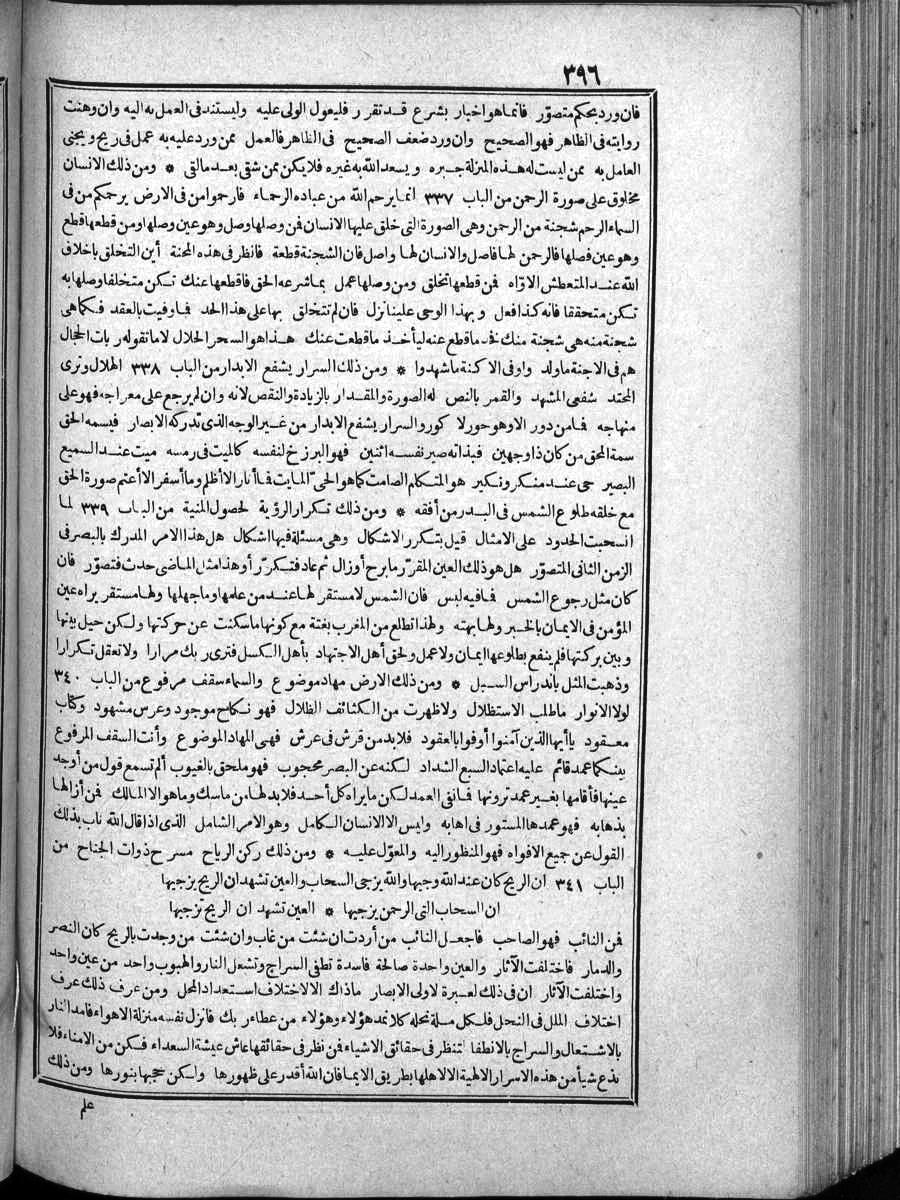 ٣٩٦
فان ورد بحكم متصوّر فانما هو اخبار بشرع قد تقرر فليعول الولى عليه وليستند فى العمل به اليه وان وهنت
روايته فى الظاهر فهو الصحيح وان ورد ضعف الصحيح فى الظاهر فالعمل ممن ورد عليه به عمل فى ريح ويجنى
العامل به ممن ليست له هذه المنزلة جبره ويسعد الله به غيره فلا يكن ممن شقى بعد مالقى * ومن ذلك الانسان
مخلوق على صورة الرحمن من الباب ٣٣٧ انما يرحم الله من عباده الرحماء فارحموا من فى الارض يرحمكم من فى
السماء الرحم شجنة من الرحمن وهى الصورة التى خلق عليها الانسان فمن وصلها وصل وهو عين وصلها ومن قطعها قطع
وهو عين فصلها فالرحمن لها فاصل والانسان لها واصل فان الشجنة قطعة فانظر فى هذه المحنة أين التخلق باخلاق
الله عند المتعطش الاوّاه فمن قطعها تخلق ومن وصلها عمل بما شرعه الحق فاقطعها عنك تكن متخلقا وصلها به
تكن متحققا فانه كذا فعل وبهذا الوحى علينا نزل فان لم تتخلق بها على هذا الحد فما وفيت بالعقد فكما هى
شجنة منه هى شجنة منك نخذ ما قطع عنه ليأخذ ما قطعت عنك هذا هو السحر الحلال لا ما تقوله ربات الحجال
هم فى الاجنة ما ولد واوفى الاكنة ما شهدوا * ومن ذلك السرار يشفع الابدار من الباب ٣٣٨ الهلال وترى
المحتد شفعى المشهد والقمر بالنص له الصورة والمقدار بالزيادة والنقص لانه وان لم يرجع على معراجه فهو على
منهاجه فما من دور الا وهو حور لا كور والسرار يشفع الابدار من غير الوجه الذى تدركه الابصار فيسمه الحق
سمة المحق من كان ذا وجهين فبذاته صير نفسه اثنين فهو البرزخ لنفسه كالميت فى رمسه ميت عند السميع
البصير حى عند منكر ونكير هو المتكلم الصامت كما هو الحىّ المايت فما أنار الا أظلم وما أسفر الا أعتم صورة الحق
مع خلقه طلوع الشمس فى البدر من أفقه * ومن ذلك تكرار الرؤية لحصول المنية من الباب ٣٣٩ لما
انسحبت الحدود على الامثال قيل بتكرر الاشكال وهى مسئلة فيها اشكال هل هذا الامر المدرك بالبصر فى
الزمن الثانى المتصوّر هل هو ذلك العين المقرّر ما برح أو زال ثم عاد فتكرّر أو هذا مثل الماضى حدث فتصوّر فان
كان مثل رجوع الشمس فما فيه لبس فان الشمس لا مستقر لها عند من علمها وما جهلها ولها مستقر يراه عين
المؤمن فى الايمان بالخبر ولها بهته ولهذا تطلع من المغرب بغتة مع كونها ما سكنت عن حركتها ولكن حيل بينها
وبين بركتها فلم ينفع بطلوعها ايمان ولا عمل ولحق أهل الاجتهاد بأهل الكسل فترى ربك مرارا ولا تعقل تكرارا
وذهبت المثل باندراس السبل * ومن ذلك الارض مهاد موضوع والسماء سقف مرفوع من الباب ٣٤٠
لولا الانوار ما طلب الاستظلال ولا ظهرت من الكثائف الظلال فهو نكاح موجود وعرس مشهود وكتاب
معقود يا أيها الذين آمنوا أوفوا بالعقود فلابد من فرش فى عرش فهى المهاد الموضوع وأنت السقف المرفوع
بينكما عمد قائم عليه اعتماد السبع الشداد لكنه عن البصر محجوب فهو ملحق بالغيوب ألم تسمع قول من أوجد
عينها فأقامها بغير عمد ترونها فما نفى العمد لكن ما يراه كل أحد فلابد لها من ماسك وما هو الا المالك فمن أزالها
بذهابه فهو عمدها المستور فى اهابه وليس الا الانسان الكامل وهو الامر الشامل الذى اذا قال الله ناب بذلك
القول عن جميع الافواه فهو المنظور اليه والمعوّل عليه * ومن ذلك ركن الرياح مسرح ذوات الجناح من
الباب ٣٤١ ان الريح كان عند الله وجيها والله يزجى السحاب والعين تشهد ان الريح يزجيها
ان السحاب التى الرحمن يزجيها * العين تشهد ان الريح تزجيها
فمن النائب فهو الصاحب فاجعل النائب من أردت ان شئت من غاب وان شئت من وجدت بالريح كان النصر
والدمار فاختلفت الآثار والعين واحدة صالحة فاسدة تطفى السراج وتشعل النار والهبوب واحد من عين واحد
واختلفت الآثار ان فى ذلك لعبرة لاولى الابصار ما ذاك الا لاختلاف استعداد المحل ومن عرف ذلك عرف
اختلاف الملل فى النحل فلكل ملة نحله كلا نمد هؤلاء وهؤلاء من عطاء ربك فانزل نفسه منزلة الاهواء فامد النار
بالاشتعال والسراج بالانطفا لتنظر فى حقائق الاشياء فمن نظر فى حقائقها عاش عيشة السعداء فكن من الامناء فلا
تذع شيأ من هذه الاسرار الالهية الا لاهلها بطريق الايما فان الله أقدر على ظهورها ولكن حجبها بنورها ومن ذلك
علم